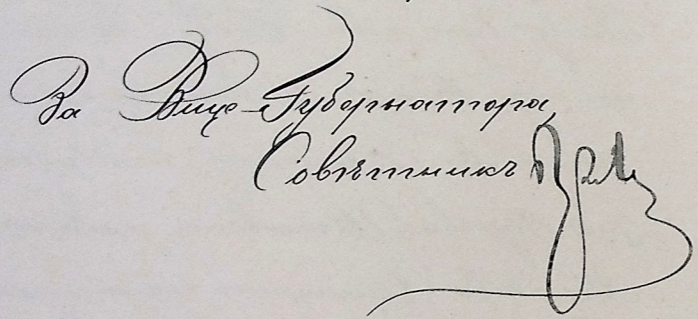 За Вице-Губернатора,
Совѣтникъ